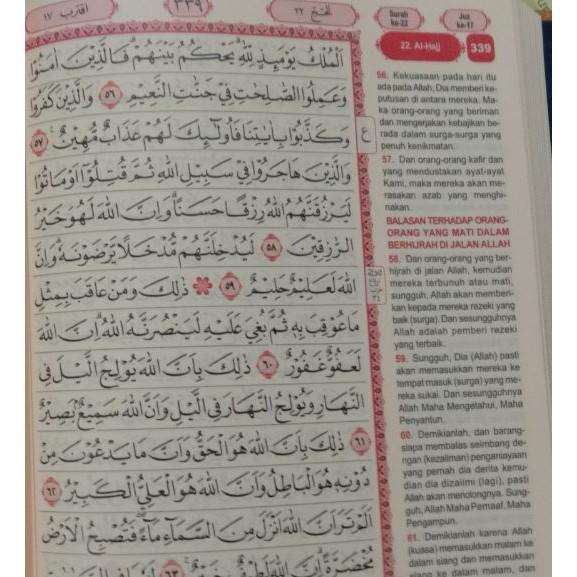 اقترب ١٧
٣٣٩
الحج ٢٢
Surah
ke-22
Juz
ke-17
22. Al-Hajj
339
اَلْمُلْكُ يَوْمَىِٕذٍ لِّلّٰهِ يَحْكُمُ بَيْنَهُمْ فَالَّذِيْنَ اٰمَنُوْا
وَعَمِلُوا الصّٰلِحٰتِ فِيْ جَنّٰتِ النَّعِيْمِ ٥٦ وَالَّذِيْنَ كَفَرُوْا
وَكَذَّبُوْا بِاٰيٰتِنَا فَاُولٰۤىِٕكَ لَهُمْ عَذَابٌ مُّهِيْنٌ ٥٧
ع
وَالَّذِيْنَ هَاجَرُوْا فِيْ سَبِيْلِ اللّٰهِ ثُمَّ قُتِلُوْٓا اَوْ مَاتُوْا
لَيَرْزُقَنَّهُمُ اللّٰهُ رِزْقًا حَسَنًا وَاِنَّ اللّٰهَ لَهُوَ خَيْرُ
الرّٰزِقِيْنَ ٥٨ لَيُدْخِلَنَّهُمْ مُّدْخَلًا يَّرْضَوْنَهٗ وَاِنَّ
اللّٰهَ لَعَلِيْمٌ حَلِيْمٌ ٥٩ ذٰلِكَ وَمَنْ عَاقَبَ بِمِثْلِ
مَا عُوْقِبَ بِهٖ ثُمَّ بُغِيَ عَلَيْهِ لَيَنْصُرَنَّهُ اللّٰهُ اِنَّ اللّٰهَ
لَعَفُوٌّ غَفُوْرٌ ٦٠ ذٰلِكَ بِاَنَّ اللّٰهَ يُوْلِجُ الَّيْلَ فِى
النَّهَارِ وَيُوْلِجُ النَّهَارَ فِى الَّيْلِ وَاَنَّ اللّٰهَ سَمِيْعٌ بَصِيْرٌ
٦١ ذٰلِكَ بِاَنَّ اللّٰهَ هُوَ الْحَقُّ وَاَنَّ مَا يَدْعُوْنَ مِنْ
دُوْنِهٖ هُوَ الْبَاطِلُ وَاَنَّ اللّٰهَ هُوَ الْعَلِيُّ الْكَبِيْرُ ٦٢
اَلَمْ تَرَ اَنَّ اللّٰهَ اَنْزَلَ مِنَ السَّمَاۤءِ مَاۤءً فَتُصْبِحُ الْاَرْضُ
مُخْضَرَّةً اِنَّ اللّٰهَ لَطِيْفٌ خَبِيْرٌ ٦٣
56. Kekuasaan pada hari itu
ada pada Allah, Dia memberi ke-
putusan di antara mereka. Ma-
ka orang-orang yang beriman
dan mengerjakan kebajikan be-
rada dalam surga-surga yang
penuh kenikmatan.
57. Dan orang-orang kafir dan
yang mendustakan ayat-ayat
Kami, maka mereka akan me-
rasakan azab yang menghi-
nakan.
BALASAN TERHADAP ORANG-
ORANG YANG MATI DALAM
BERHIJRAH DI JALAN ALLAH
58. Dan orang-orang yang ber-
hijrah di jalan Allah, kemudian
mereka terbunuh atau mati,
sungguh, Allah akan memberi-
kan kepada mereka rezeki yang
baik (surga). Dan sesungguhnya
Allah adalah pemberi rezeki
yang terbaik.
59. Sungguh, Dia (Allah) pasti
akan memasukkan mereka ke
tempat masuk (surga) yang me-
reka sukai. Dan sesungguhnya
Allah Maha Mengetahui, Maha
Penyantun.
60. Demikianlah, dan barang-
siapa membalas seimbang de-
ngan (kezaliman) penganiayaan
yang pernah dia derita kemu-
dian dia dizalimi (lagi), pasti
Allah akan menolongnya. Sung-
guh, Allah Maha Pemaaf, Maha
Pengampun.
61. Demikianlah karena Allah
(kuasa) memasukkan malam ke
dalam siang dan memasukkan
siang ke dalam malam, dan